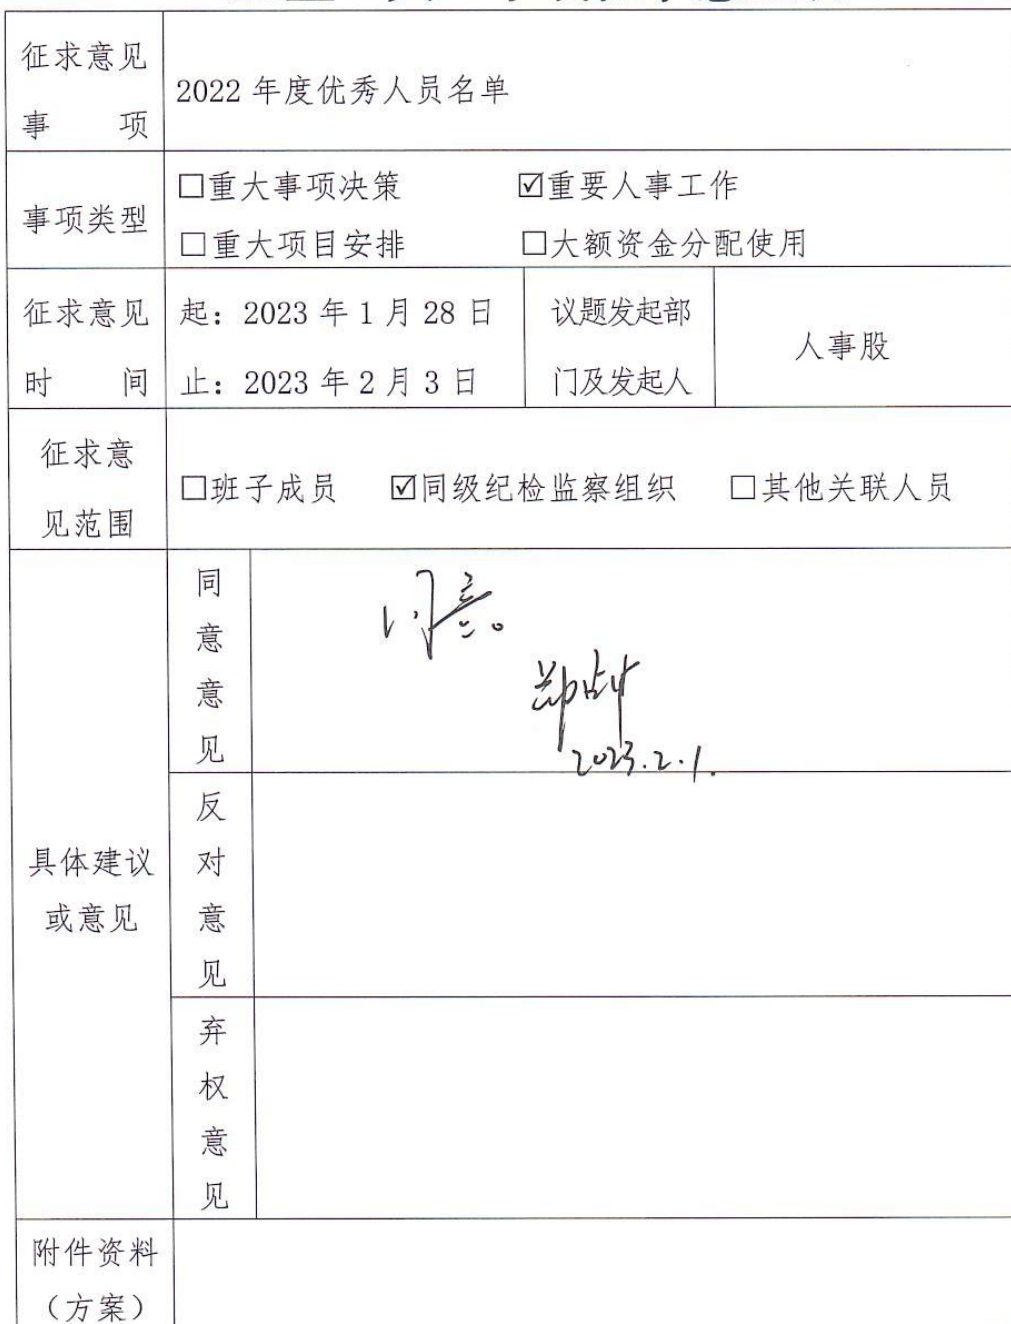 征求意见
事 项
2022 年度优秀人员名单
事项类型
☐重大事项决策 ☑重要人事工作
☐重大项目安排 ☐大额资金分配使用
征求意见
时 间
起：2023 年 1 月 28 日
止：2023 年 2 月 3 日
议题发起部
门及发起人
人事股
征求意
见范围
☐班子成员 ☑同级纪检监察组织 ☐其他关联人员
具体建议
或意见
同
意
意
见
同意。
2023.2.1.
反
对
意
见
弃
权
意
见
附件资料
（方案）